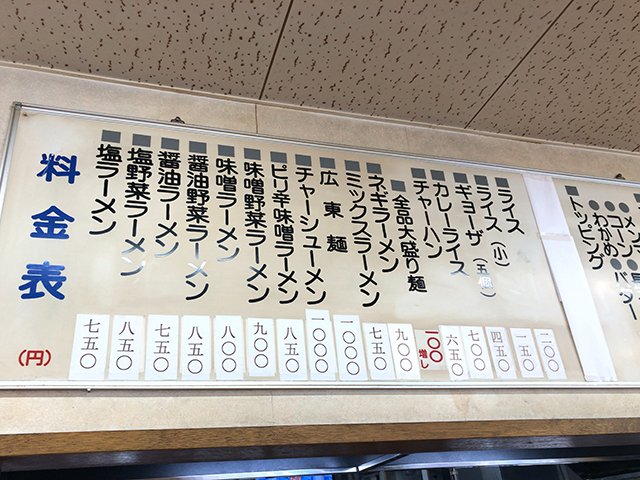 料金表
(円)
塩ラーメン
七五〇
塩野菜ラーメン
八五〇
醤油ラーメン
七五〇
醤油野菜ラーメン
八五〇
味噌ラーメン
八〇〇
味噌野菜ラーメン
九〇〇
ピリ辛味噌ラーメン
八五〇
チャーシューメン
一〇〇〇
広東麺
一〇〇〇
ミックスラーメン
七五〇
ネギラーメン
九〇〇
全品大盛り麺
一〇〇増し
チャーハン
六五〇
カレーライス
七〇〇
ギョーザ(五個)
四五〇
ライス(小)
一五〇
ライス
二〇〇
トッピング
●わかめ
●コーン
●バター